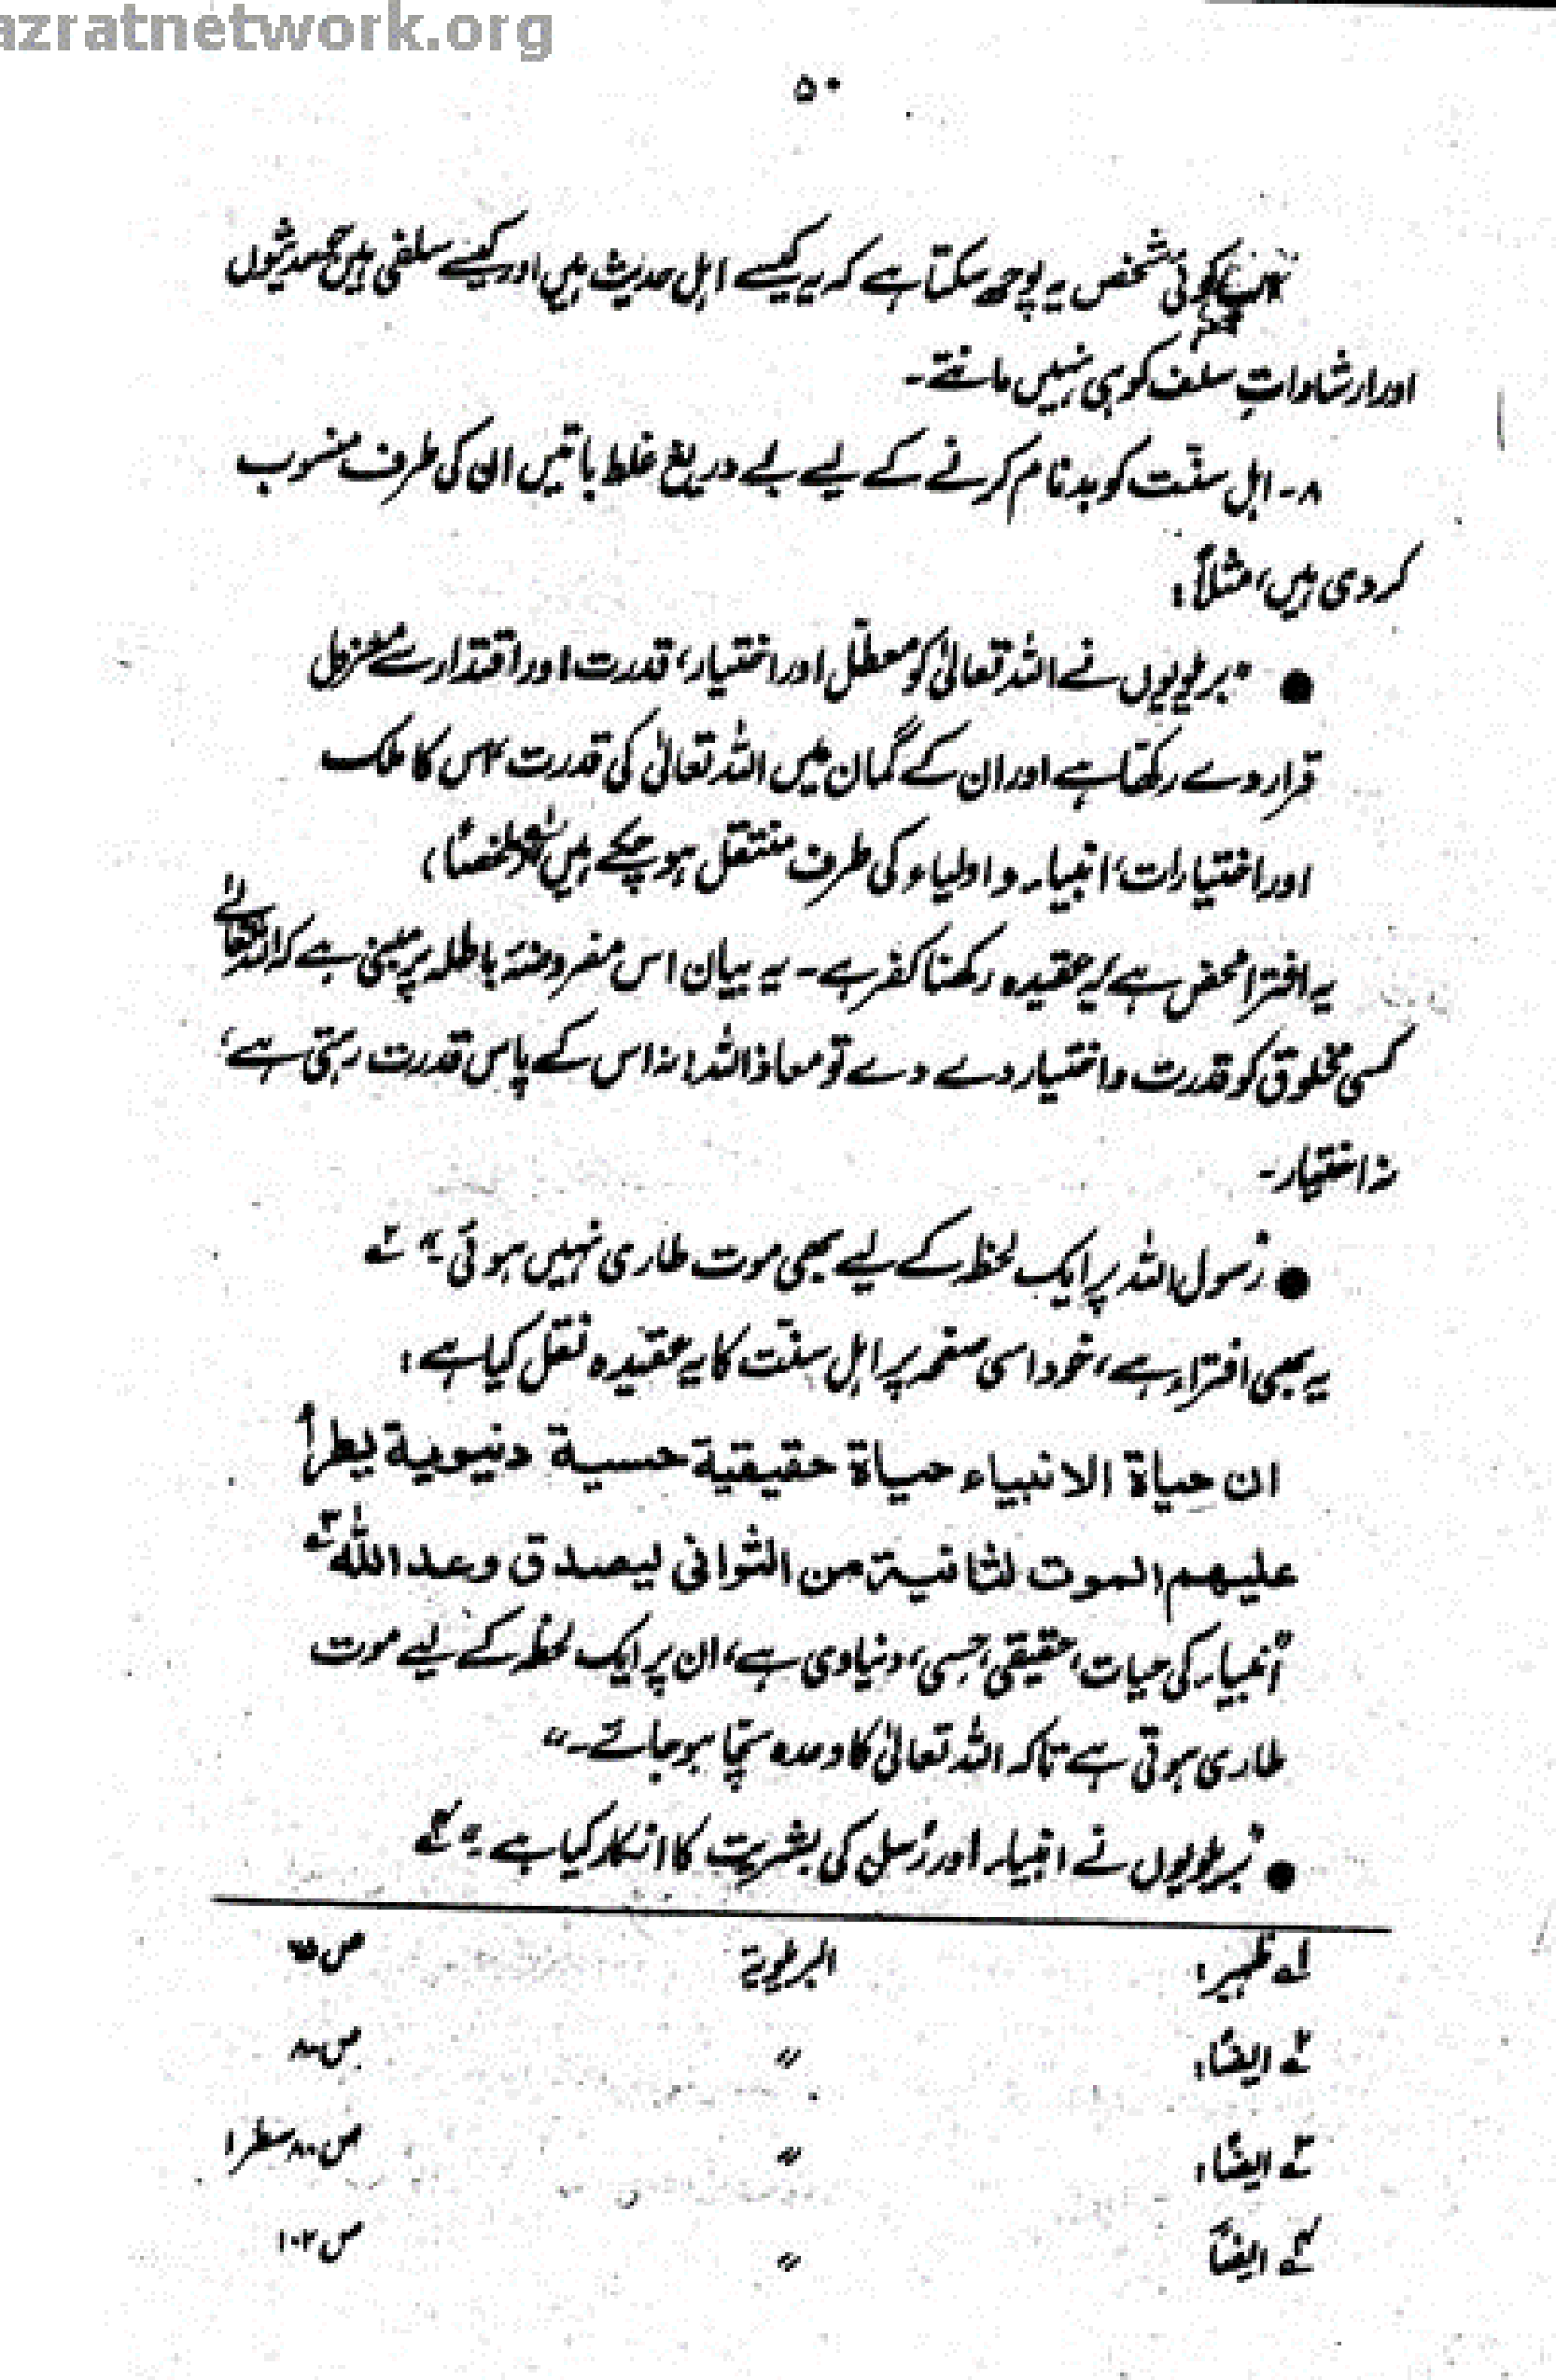 azratnetwork.org
۵۰
کوئی شخص یہ پوچھ سکتا ہے کہ یہ کیسے اہل حدیث ہیں اور کیسے سلفی ہیں جو حدیثوں
اور ارشاداتِ سلف کو ہی نہیں مانتے۔
۸۔ اہل سنّت کو بدنام کرنے کے لیے بے دریغ غلط باتیں ان کی طرف منسوب
کر دی ہیں، مثلاً:
● "بریلویوں نے اللہ تعالیٰ کو معطّل اور اختیار، قدرت اور اقتدار سے معزول
قرار دے رکھا ہے اور ان کے گمان میں اللہ تعالیٰ کی قدرت اس کا ملک
اور اختیارات، انبیاء و اولیاء کی طرف منتقل ہو چکے ہیں" (ملخصاً)
یہ افترا محض ہے، یہ عقیدہ رکھنا کفر ہے۔ یہ بیان اس مفروضۂ باطلہ پر مبنی ہے کہ اللہ تعالےٰ
کسی مخلوق کو قدرت و اختیار دے دے تو معاذ اللہ! نہ اس کے پاس قدرت رہتی ہے،
نہ اختیار۔
● "رسول اللہ پر ایک لحظہ کے لیے بھی موت طاری نہیں ہوئی۔" ۲؎
یہ بھی افتراء ہے، خود اسی صفحہ پر اہل سنّت کا یہ عقیدہ نقل کیا ہے:
ان حیاة الانبیاء حیاة حقیقیة حسیة دنیویة یطرأ
علیهم الموت لثانیة من الثوانی لیصدق وعد اللّٰه ۳؎
"انبیاء کی حیات، حقیقی، حسی، دنیاوی ہے، ان پر ایک لحظہ کے لیے موت
طاری ہوتی ہے تاکہ اللہ تعالیٰ کا وعدہ سچّا ہو جائے۔"
● "بریلویوں نے انبیاء اور رُسل کی بشریت کا انکار کیا ہے۔" ۴؎
۱؎ ظہیر: البریلویة ص
۲؎ ایضاً: " ص ۸۰
۳؎ ایضاً: " ص ۸۰ سطر ۱
۴؎ ایضاً " ص ۱۰۲